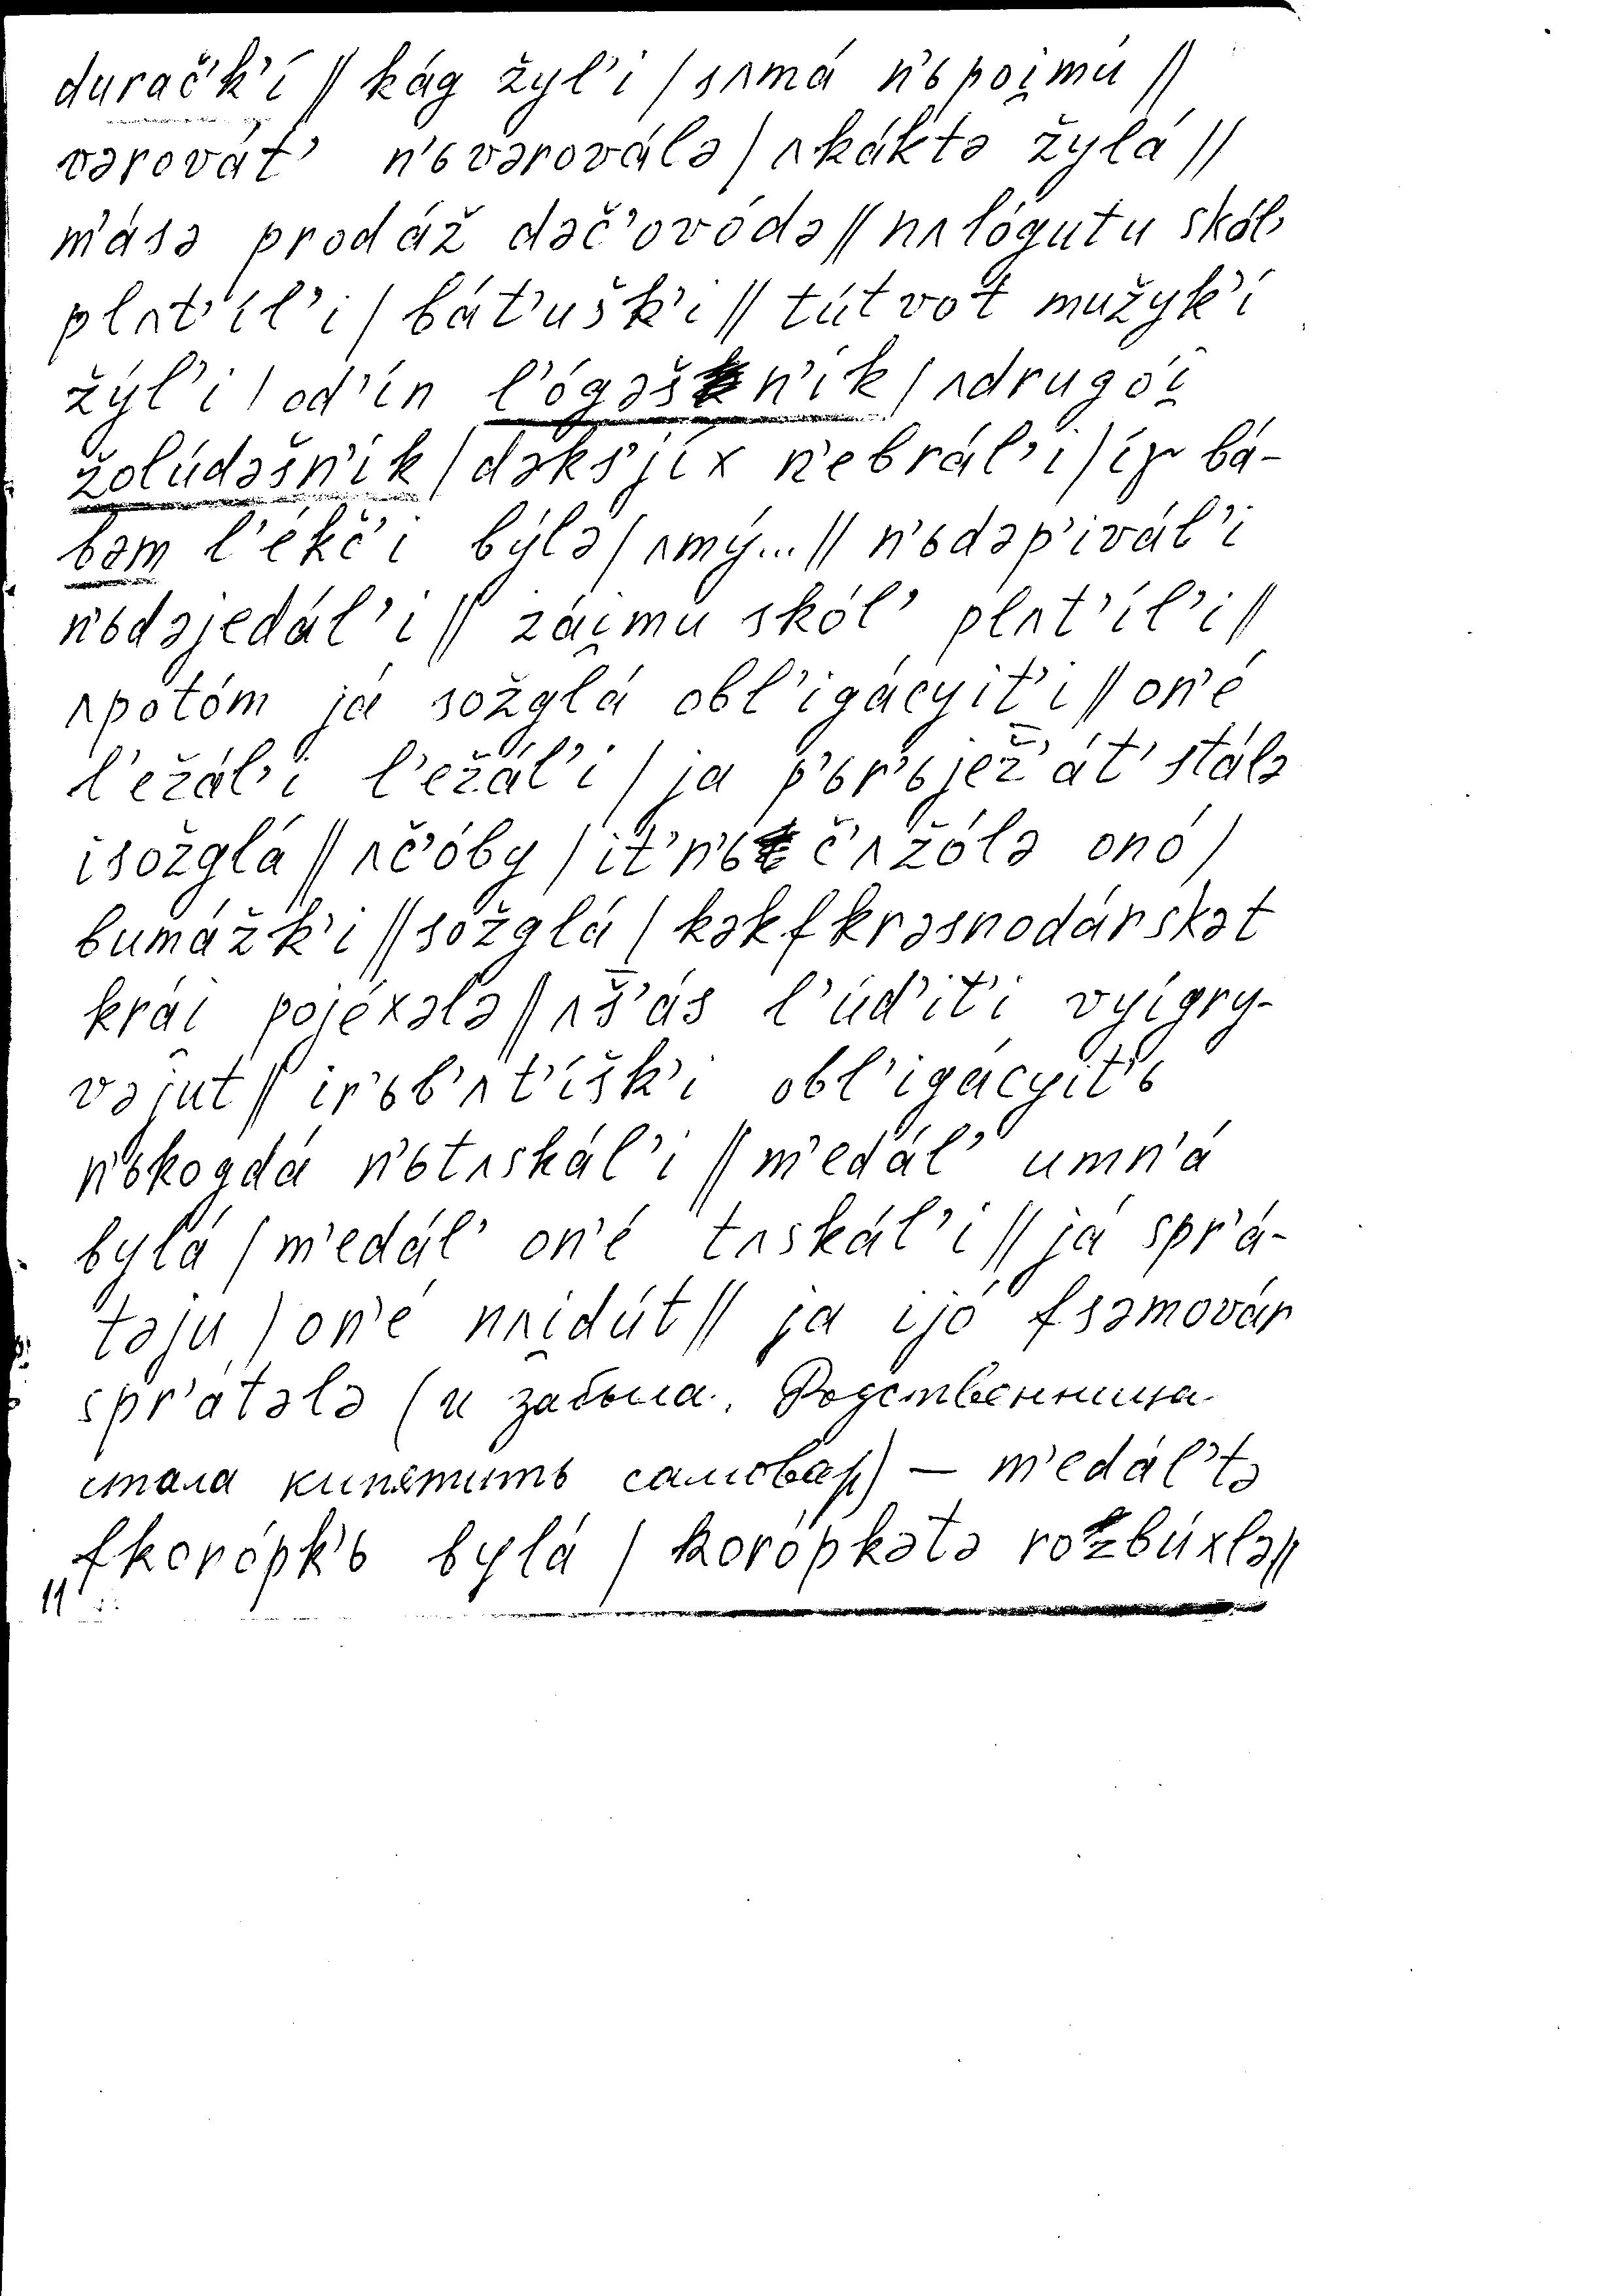 durač’k’í // kág žyl’i / sʌmá n’ьpoi̯mú //
vərovát’ n’ьvəroválə / ʌkáktə žylá //
m’ásə prodáž dəč’ovódə // nʌlógutu skól’
plʌt’íl’i / bát’ušk’i // tút vot mužyk’í
žýl’i / od’ín l’ógəšn’ik / ʌdrugói̯
žolúdəšn’ik / dəks’jíx n’ebrál’i / ím bá-
bəm l’ékč’i býlə / ʌmý... // n’ьdəp’ivál’i
n’ьdəjedál’i // zái̯mu skól’ plʌt’íl’i //
ʌpotóm já sožglá obl’igácyit’i // on’é
l’ežál’i l’ežál’i / ja p’ьr’ьjež̄’át’ stálə
isožglá // ʌč’óby / it’n’ь č’ʌžólə onó /
bumážk’i // sožglá / kəkfkrəsnodárskət
krái̯ pojéxələ // ʌš̄’ás l’úd’it’i vyígry-
vəjut // ir’ьb’ʌt’íšk’i obl’igácyit’ь
n’ьkogdá n’ьtʌskál’i // m’edál’ umn’á
bylá / m’edál’ on’é tʌskál’i // já spr’á-
təju / on’é nʌi̯dút // ja ijó fsəmovár
spr’átələ (и забыла. Родственница
стала кипятить самовар) – m’edál’tə
fkorópk’ь bylá / korópkətə rozbúxlə //
11